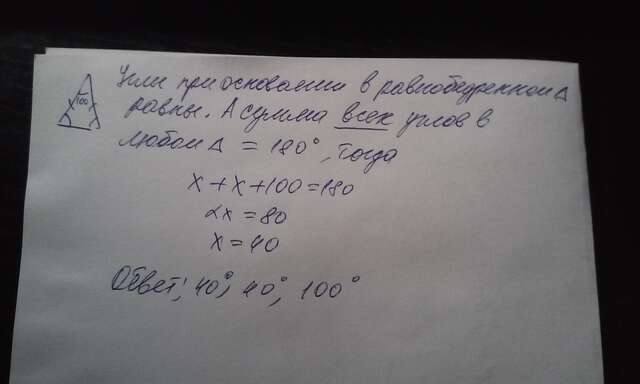 100
Углы при основании в равнобедренном Δ
равны. А сумма всех углов в
любом Δ = 180°, тогда
x + x + 100 = 180
2x = 80
x = 40
Ответ: 40°, 40°, 100°